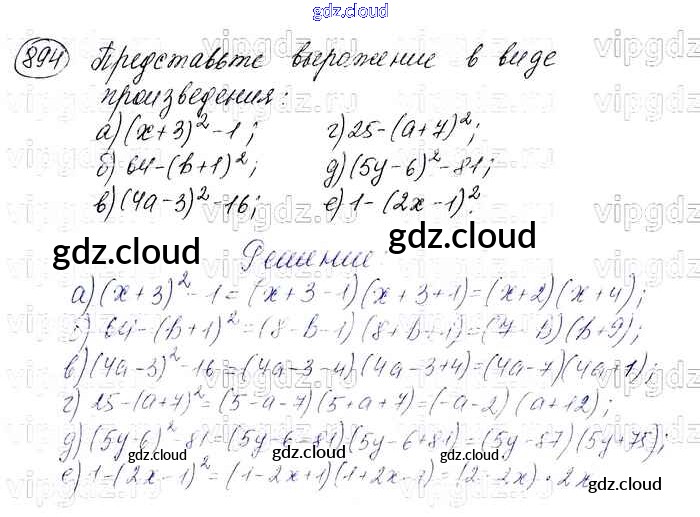 gdz.cloud
894 Представьте выражение в виде
произведения:
а) (x+3)² - 1; г) 25-(a+7)²;
б) 64-(b+1)²; д) (5y-6)² - 81;
в) (4a-3)² - 16; е) 1-(2x-1)².
gdz.cloud gdz.cloud
Решение:
а) (x+3)² - 1 = (x+3-1)(x+3+1) = (x+2)(x+4);
б) 64-(b+1)² = (8-b-1)(8+b+1) = (7-b)(b+9);
в) (4a-3)² - 16 = (4a-3-4)(4a-3+4) = (4a-7)(4a+1);
г) 25-(a+7)² = (5-a-7)(5+a+7) = (-a-2)(a+12);
д) (5y-6)² - 81 = (5y-6-81)(5y-6+81) = (5y-87)(5y+75);
gdz.cloud gdz.cloud gdz.cloud
е) 1-(2x-1)² = (1-2x+1)(1+2x-1) = (2-2x)·2x
gdz.cloud